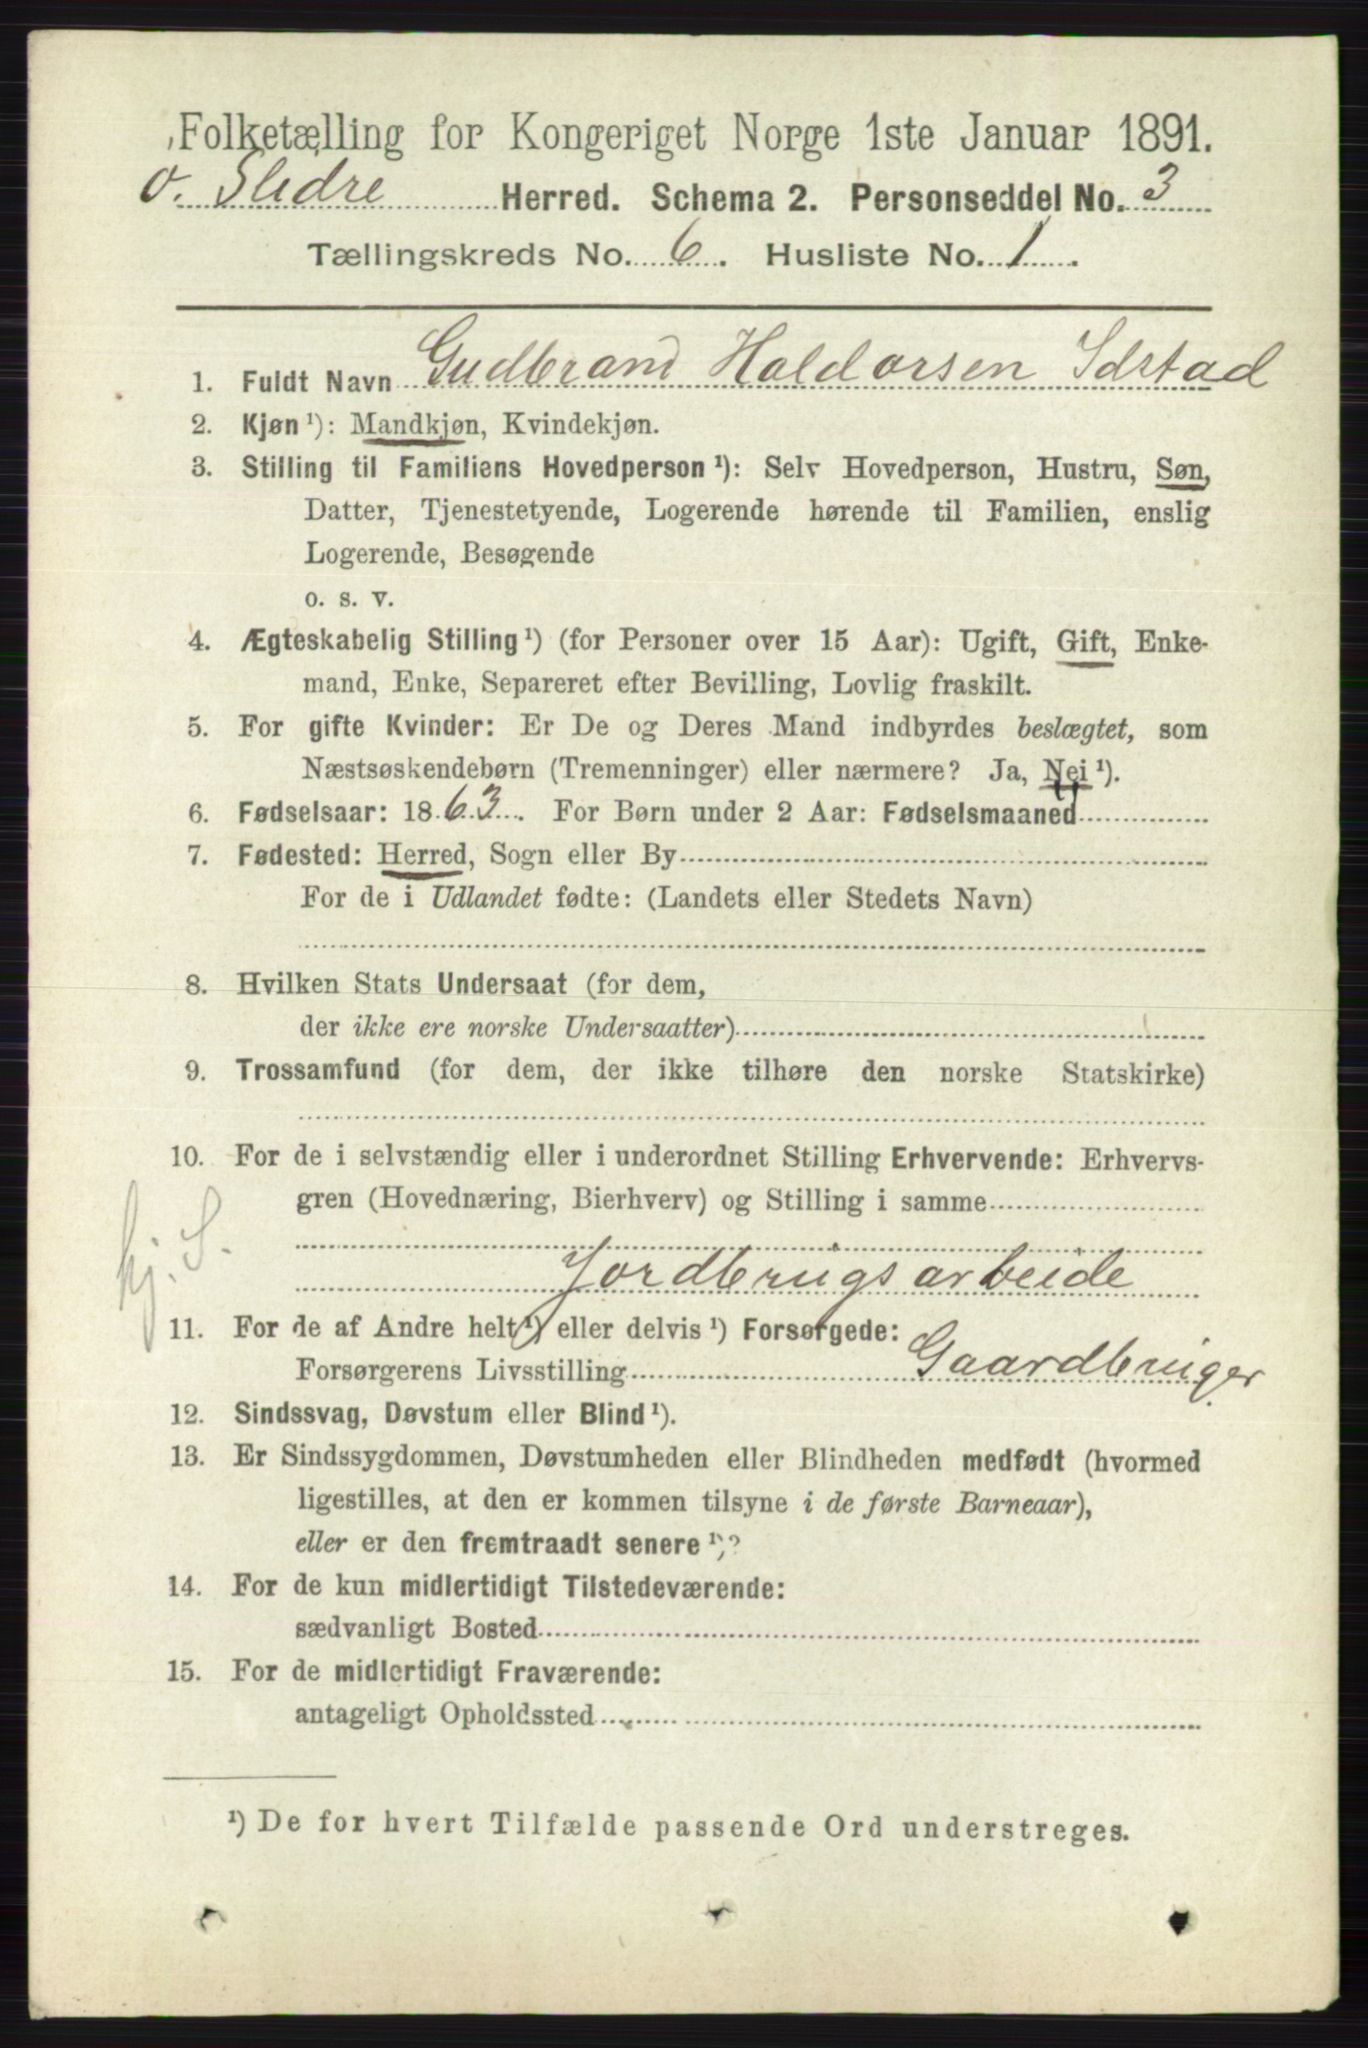 Folketælling for Kongeriget Norge 1ste Januar 1891.
ø. Slidre Herred. Schema 2. Personseddel No. 3
Tællingskreds No. 6. Husliste No. 1.
1. Fuldt Navn Gudbrand Haldorsen Idstad
2. Kjøn ¹): Mandkjøn, Kvindekjøn.
3. Stilling til Familiens Hovedperson ¹): Selv Hovedperson, Hustru, Søn,
Datter, Tjenestetyende, Logerende hørende til Familien, enslig
Logerende, Besøgende
o. s. v.
4. Ægteskabelig Stilling ¹) (for Personer over 15 Aar): Ugift, Gift, Enke-
mand, Enke, Separeret efter Bevilling, Lovlig fraskilt.
5. For gifte Kvinder: Er De og Deres Mand indbyrdes beslægtet, som
Næstsøskendebørn (Tremenninger) eller nærmere? Ja, Nei ¹).
6. Fødselsaar: 1863. For Børn under 2 Aar: Fødselsmaaned
7. Fødested: Herred, Sogn eller By
For de i Udlandet fødte: (Landets eller Stedets Navn)
8. Hvilken Stats Undersaat (for dem,
der ikke ere norske Undersaatter)
9. Trossamfund (for dem, der ikke tilhøre den norske Statskirke)
10. For de i selvstændig eller i underordnet Stilling Erhvervende: Erhvervs-
gren (Hovednæring, Bierhverv) og Stilling i samme
kj. S.
Jordbrugsarbeide
11. For de af Andre helt ¹) eller delvis ¹) Forsørgede:
Forsørgerens Livsstilling Gaardbruger.
12. Sindssvag, Døvstum eller Blind ¹).
13. Er Sindssygdommen, Døvstumheden eller Blindheden medfødt (hvormed
ligestilles, at den er kommen tilsyne i de første Barneaar),
eller er den fremtraadt senere ¹)?
14. For de kun midlertidigt Tilstedeværende:
sædvanligt Bosted
15. For de midlertidigt Fraværende:
antageligt Opholdssted
¹) De for hvert Tilfælde passende Ord understreges.